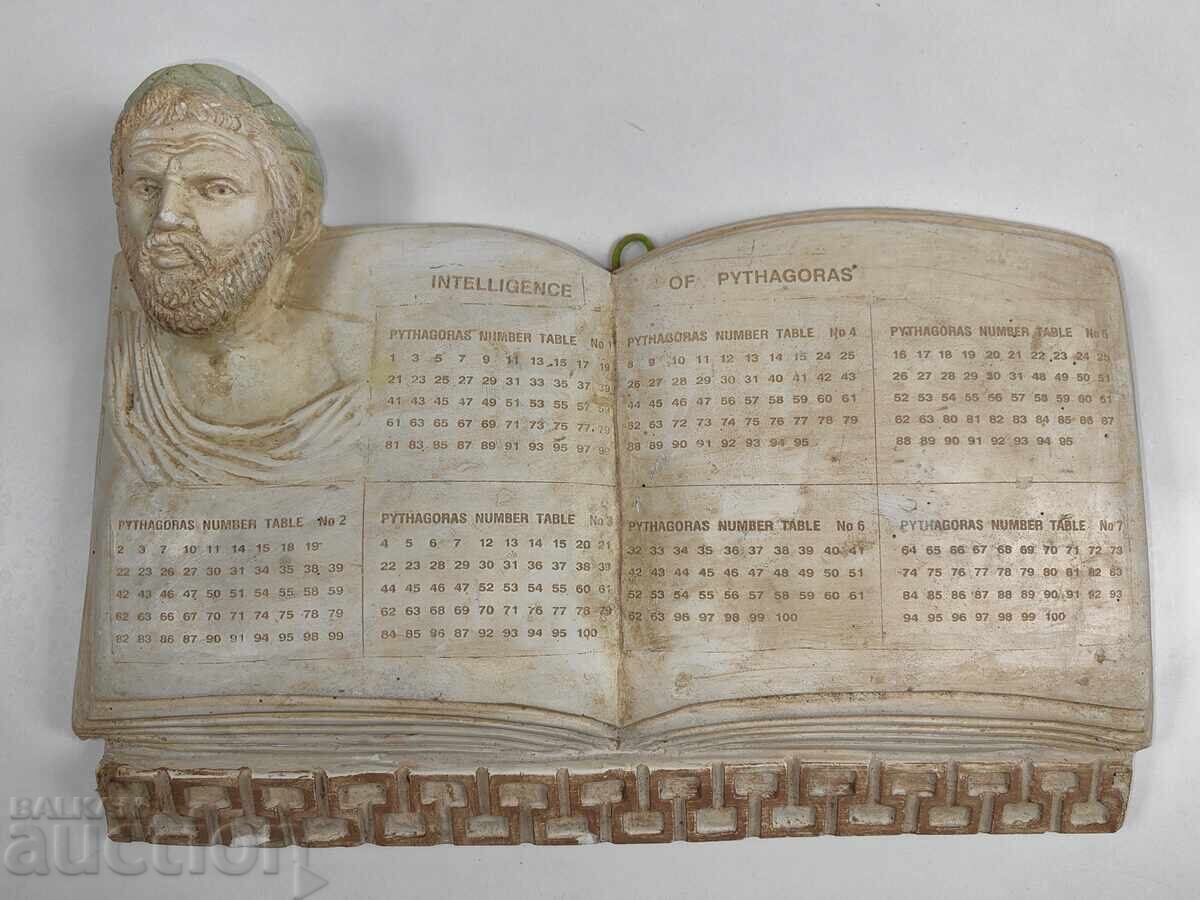 INTELLIGENCE OF PYTHAGORAS
PYTHAGORAS NUMBER TABLE No 1
1 3 5 7 9 11 13 15 17 19
21 23 25 27 29 31 33 35 37 39
41 43 45 47 49 51 53 55 57 59
61 63 65 67 69 71 73 75 77 79
81 83 85 87 89 91 93 95 97 99
PYTHAGORAS NUMBER TABLE No 4
8 9 10 11 12 13 14 15 24 25
26 27 28 29 30 31 40 41 42 43
44 45 46 47 56 57 58 59 60 61
62 63 72 73 74 75 76 77 78 79
88 89 90 91 92 93 94 95
PYTHAGORAS NUMBER TABLE No 5
16 17 18 19 20 21 22 23 24 25
26 27 28 29 30 31 48 49 50 51
52 53 54 55 56 57 58 59 60 61
62 63 80 81 82 83 84 85 86 87
88 89 90 91 92 93 94 95
PYTHAGORAS NUMBER TABLE No 2
2 3 7 10 11 14 15 18 19
22 23 26 27 30 31 34 35 38 39
42 43 46 47 50 51 54 55 58 59
62 63 66 67 70 71 74 75 78 79
82 83 86 87 90 91 94 95 98 99
PYTHAGORAS NUMBER TABLE No 3
4 5 6 7 12 13 14 15 20 21
22 23 28 29 30 31 36 37 38 39
44 45 46 47 52 53 54 55 60 61
62 63 68 69 70 71 76 77 78 79
84 85 86 87 92 93 94 95 100
PYTHAGORAS NUMBER TABLE No 6
32 33 34 35 36 37 38 39 40 41
42 43 44 45 46 47 48 49 50 51
52 53 54 55 56 57 58 59 60 61
62 63 96 97 98 99 100
PYTHAGORAS NUMBER TABLE No 7
64 65 66 67 68 69 70 71 72 73
74 75 76 77 78 79 80 81 82 83
84 85 86 87 88 89 90 91 92 93
94 95 96 97 98 99 100
BALKAN
auction